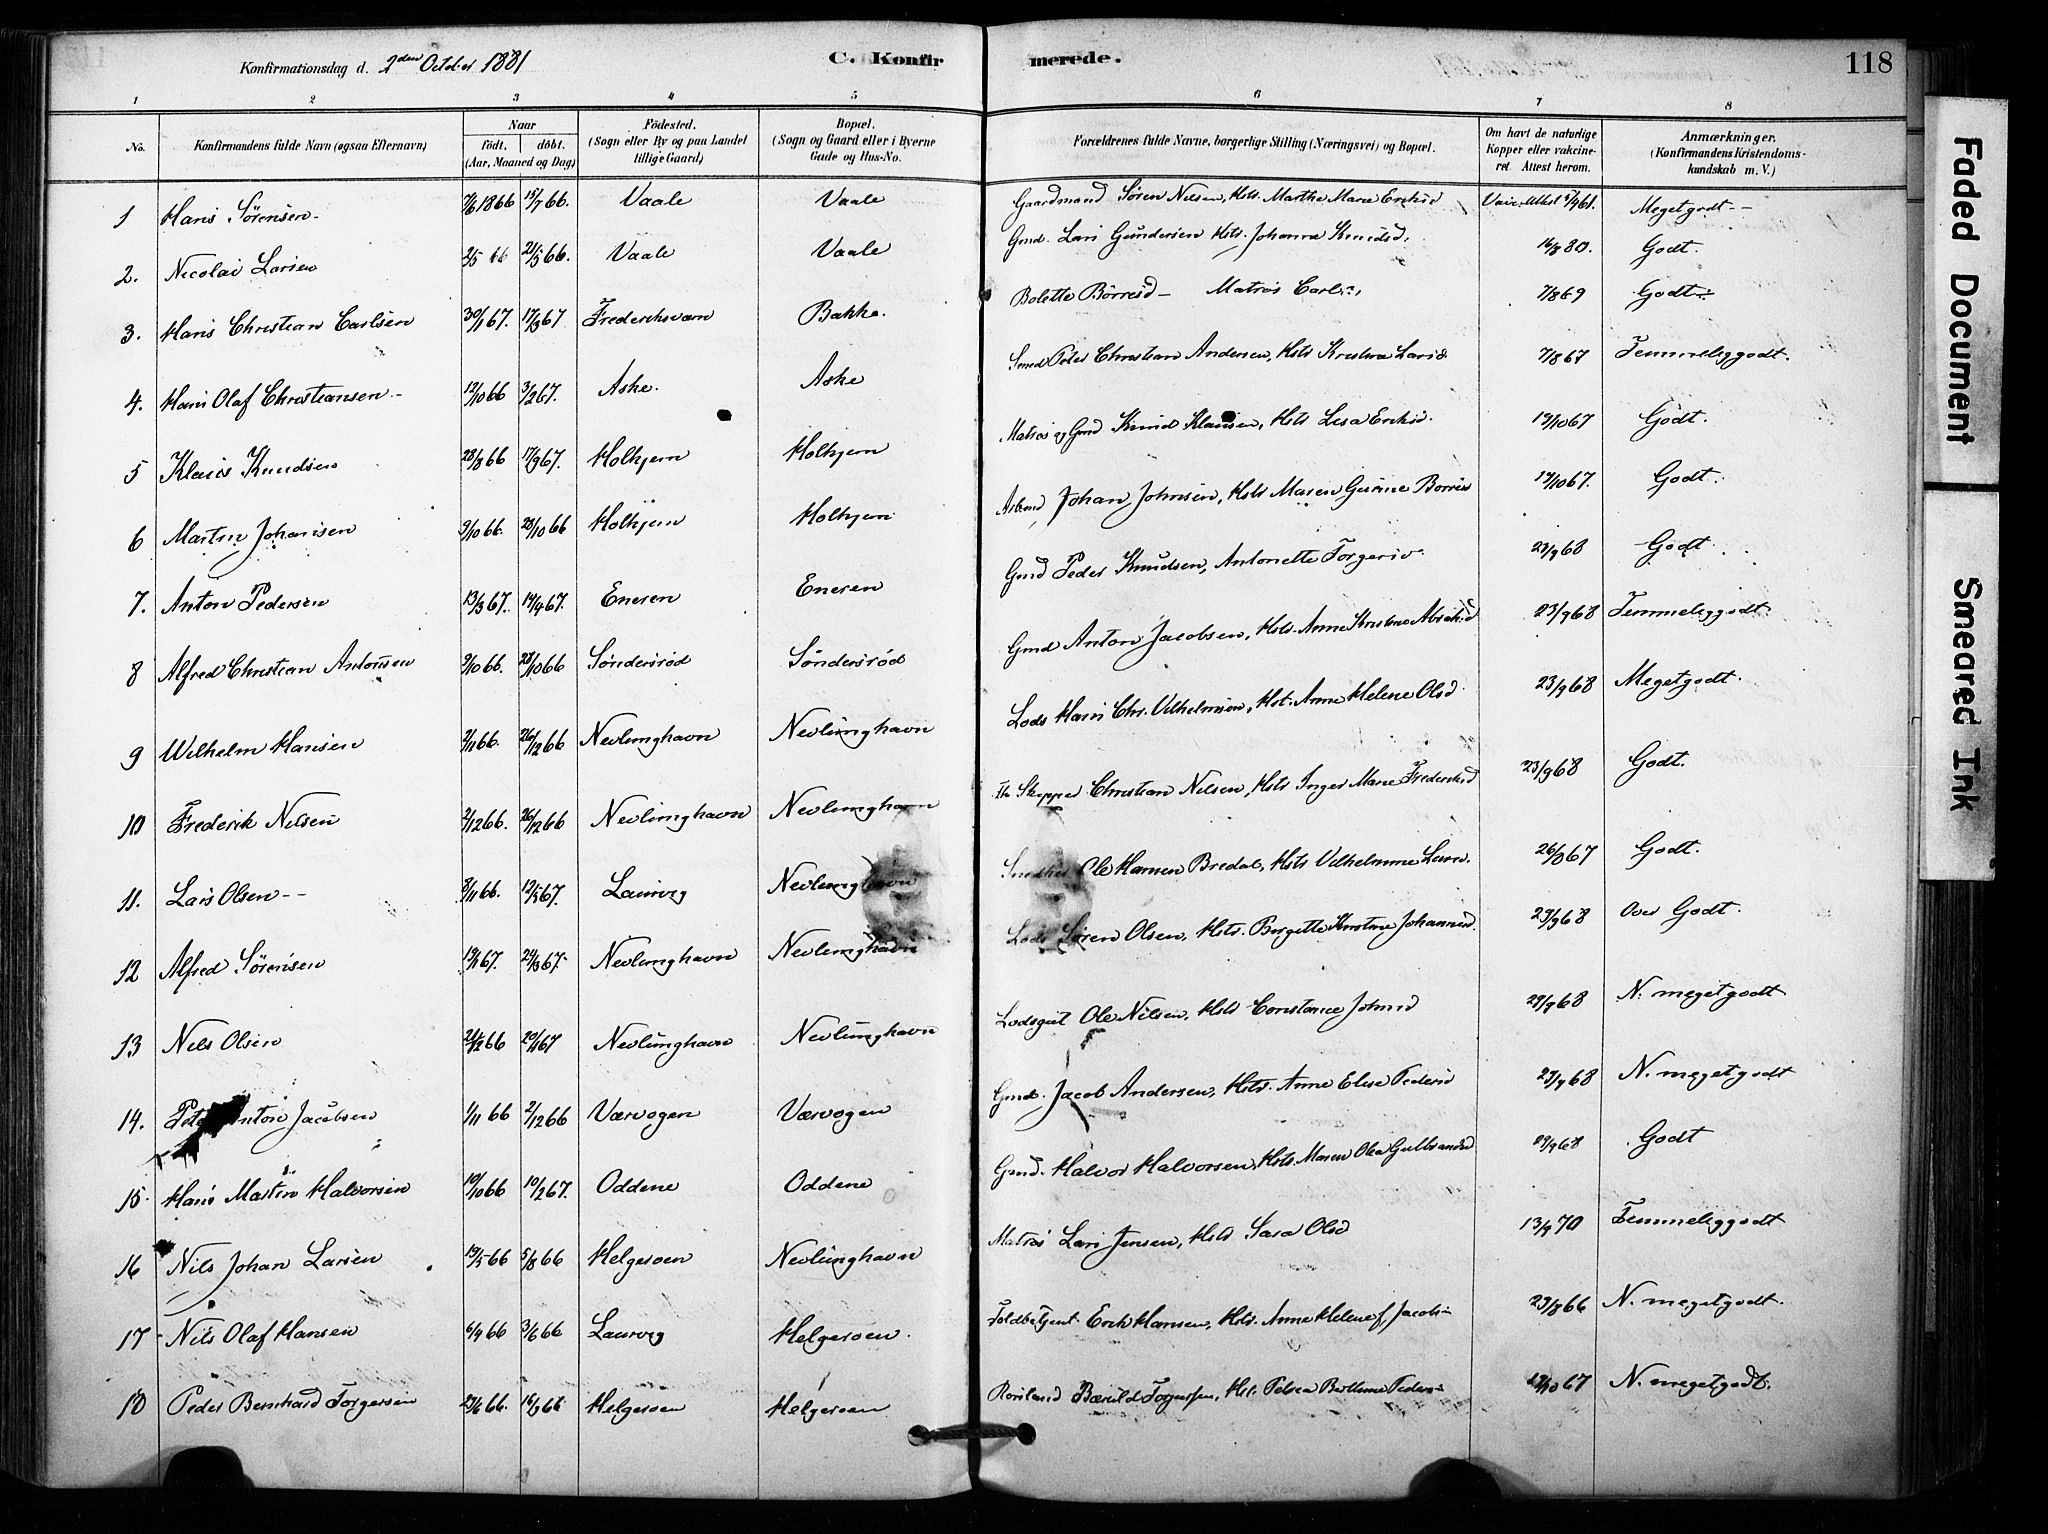 Konfirmationsdag d. 2den October 1881
C. Konfirmerede.
118
1 2 3 4 5 6 7 8
No.
Konfirmandens fulde Navn (ogsaa Efternavn)
Naar
födt. döbt.
(Aar, Maaned og Dag)
Födested.
(Sogn eller By og paa Landet
tillige Gaard)
Bopæl.
(Sogn og Gaard eller i Byerne
Gade og Hus-No.
Forældrenes fulde Navne, borgerlige Stilling (Næringsvei) og Bopæl.
Om havt de naturlige
Kopper eller vakcine-
ret Attest herom.
Anmærkninger.
(Konfirmandens Kristendoms-
kundskab m. V.)
1 Hans Sörensen 7/6 1866 15/7 66. Vaale Vaale Gaardmand Sören Nilsen, Hst. Marthe Marie Eriksd Meget godt
2. Nicolai Larsen 2/5 66 21/5 66. Vaale Vaale Gmd. Lars Gundersen Hst. Johanne Knudsd. 16/8 80. Godt.
3. Hans Christian Carlsen 30/1 67. 17/3 67 Frederiksværn Bakke. Bolette Börresd – Matros Carl 7/8 69 Godt
4. Hans Olaf Christiansen 12/10 66 3/2 67. Aske. Aske Smed Peter Christian Andersen, Hst. Kristine Larsd. 7/8 67 Temmelig godt.
5 Klaus Knudsen 28/8 66 17/3 67. Holhjem Holhjem Matros og Gmd Knud Klausen, Hst. Lisa Eriksd. 19/10 67 Godt.
6 Martin Johansen 9/10 66. 28/10 66 Holhjem Holhjem Arbmd Johan Johnsen, Hst. Maren Gurine Borres 19/10 67. Godt.
7. Anton Pedersen 13/3 67. 19/4 67. Eneren Eneren Gmd Peder Knudsen, Antonette Torgersd. 23/9 68 Godt
8 Alfred Christian Antonsen 9/10 66. 28/10 66 Söndersröd Söndersröd Gmd Anton Jacobsen, Hst. Anne Kristine Abrahsd 23/9 68 Temmelig godt
9 Wilhelm Hansen 2/11 66. 26/12 66 Nevlunghavn Nevlunghavn Lods Hans Chr. Vilhelmsen, Hst. Anne Helene Olsd. 23/9 68 Meget godt.
10 Frederik Nilsen 2/12 66. 26/12 66 Nevlunghavn Nevlunghavn Skipper Christian Nilsen, Hst. Inger Marie Frederiksd 23/9 68 Godt.
11. Lars Olsen 8/11 66. 12/5 67. Laurvig Nevlunghavn Snedker Ole Hansen Bredal, Hst. Vilhelmine Larsn. Godt.
12 Alfred Sörensen 19/1 67. 24/3 67. Nevlunghavn Nevlunghavn Lods Sören Olsen, Hst. Birgitte Kirstine Johannesd. 23/9 68 Over Godt.
13 Nils Olsen 66 20/1 67 Nevlunghavn Nevlunghavn Lodsgut Ole Nilsen, Hst. Constance Johnsd 23/9 68 N. meget godt
14. Peter Anton Jacobsen 1/11 66 2/12 66 Værvogen Værvogen Gmd. Jacob Andersen, Hst. Anne Elise Pedersd 23/9 68 N. meget godt
15. Hans Martin Halvorsen 10/10 66 10/2 67. Oddene Oddene Gmd. Halvor Halvorsen, Hst. Maren Olea Gulbrandsd 23/9 68 Godt
16 Nils Johan Larsen 19/5 66 5/8 66 Helgeroen Nevlunghavn Matros Lars Jensen, Hst. Sara Olsd 13/9 70 Temmelig godt
17 Nils Olaf Hansen 6/4 66 3/6 66 Laurvig Helgeroen. Toldbetjent Erik Hansen, Hst. Anne Helene f. Jacobs 23/8 66 N. meget godt.
18 Peder Bernhard Torgersen 24/6 66. 16/9 66 Helgeroen Helgeroen Berthine Peders 67 N. meget godt.
Faded Document
Smeared Ink